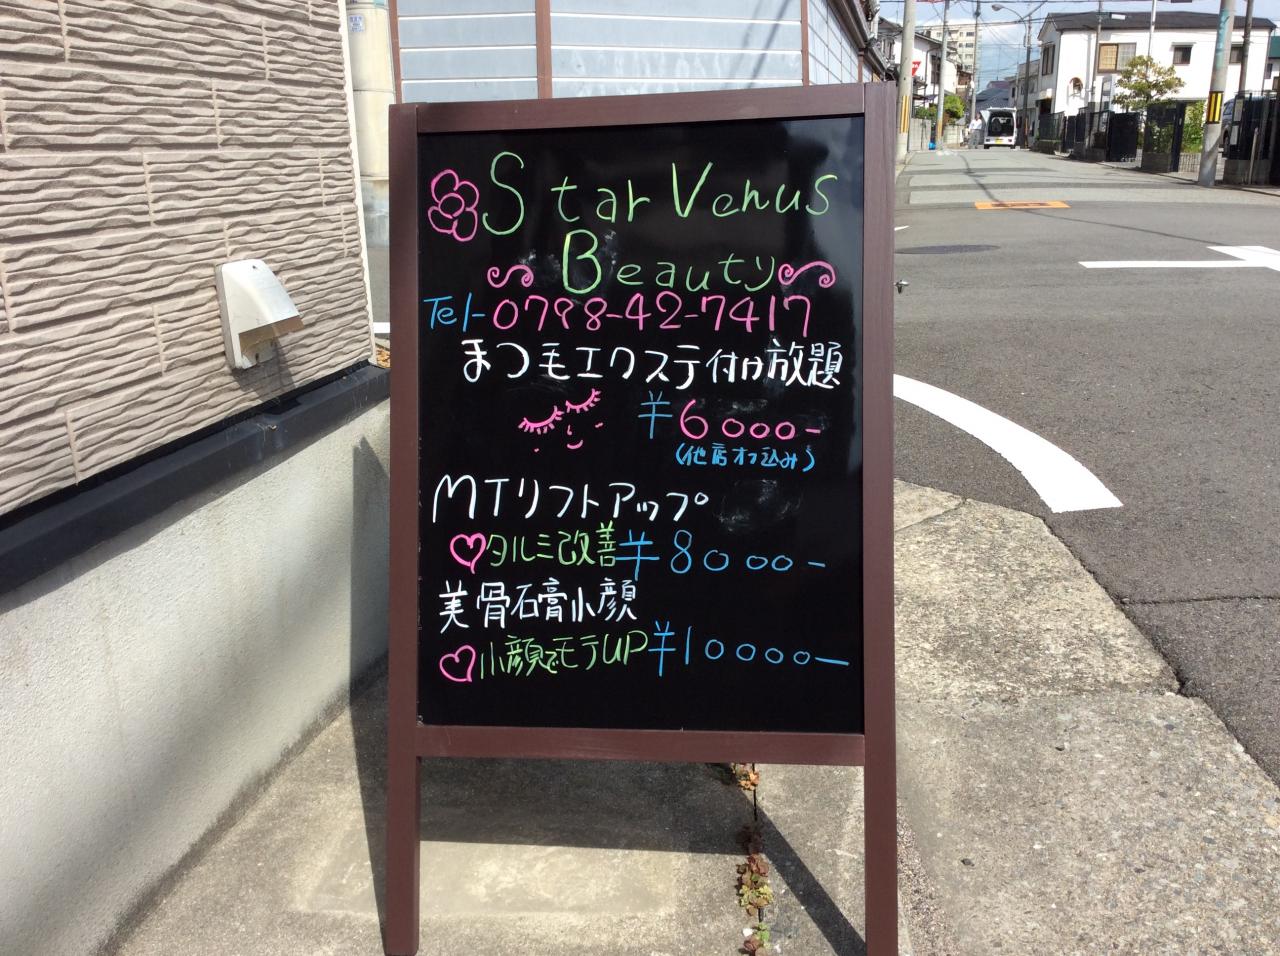 Star Venus
Beauty
Tel-0798-42-7417
まつ毛エクステ付け放題
¥6000-
(他店オフ込み)
MTリフトアップ
タルミ改善¥8000-
美骨石膏小顔
小顔でモテUP¥10000-